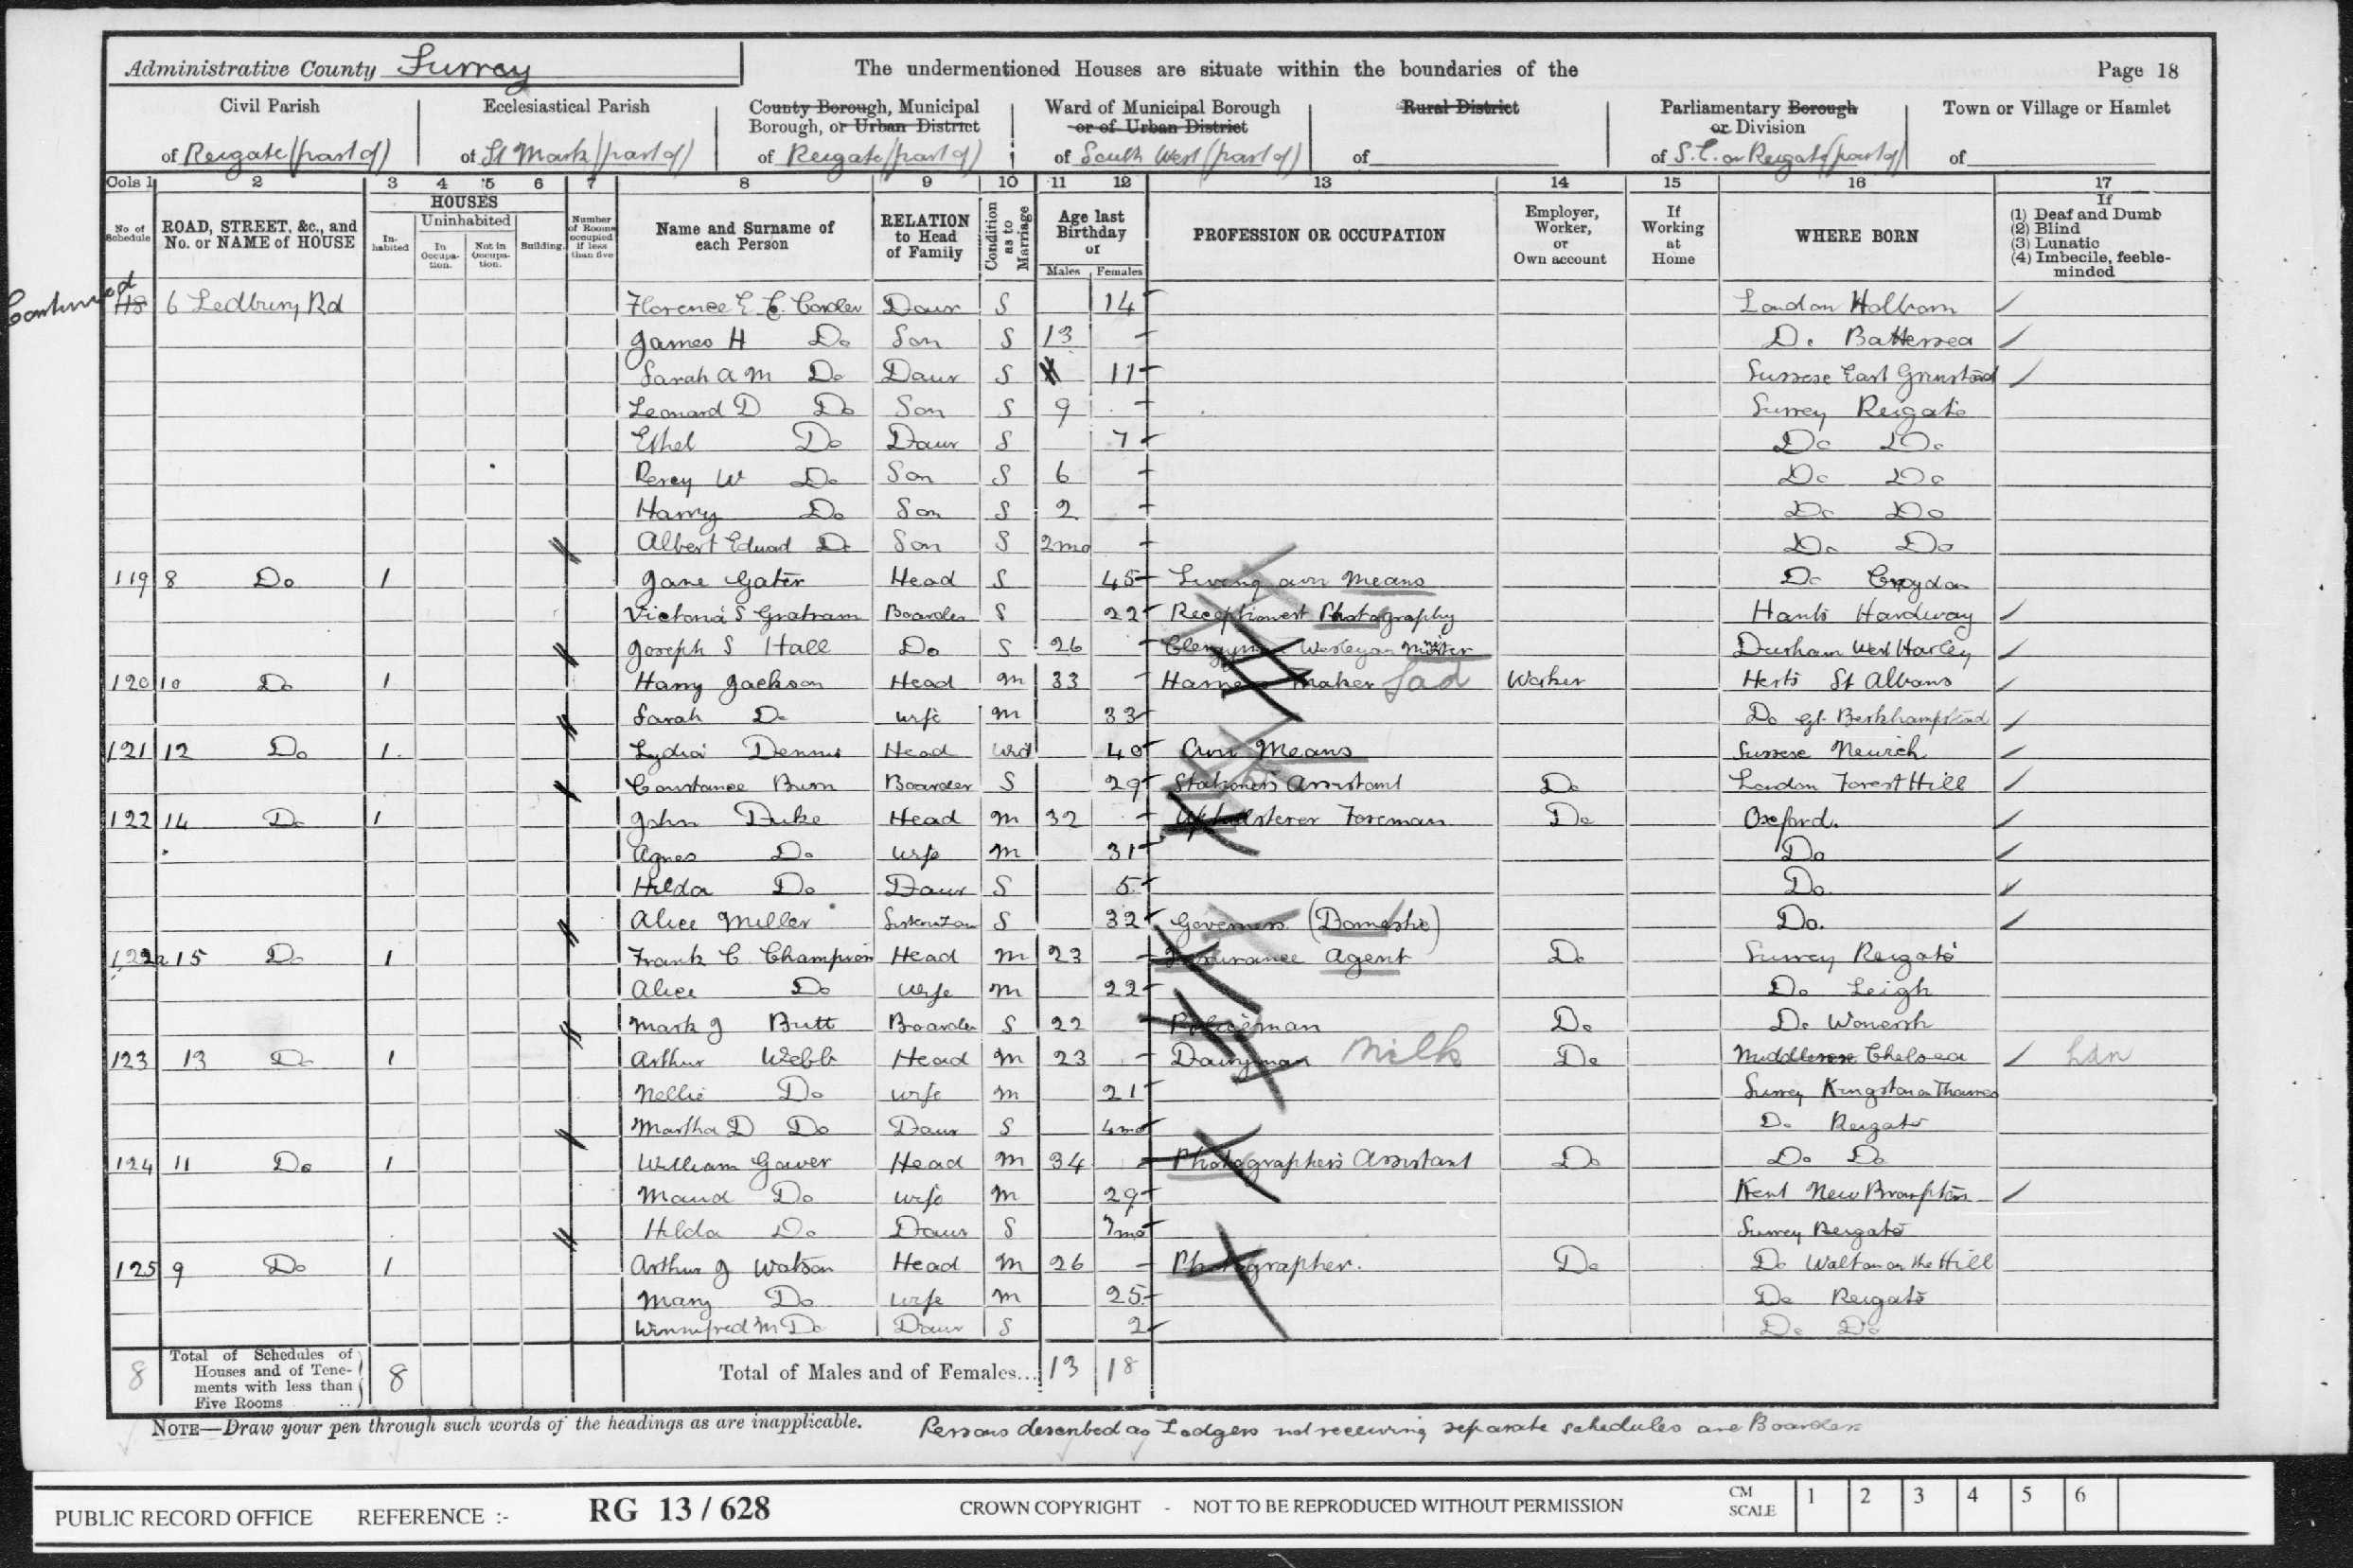 Administrative County Surrey
The undermentioned Houses are situate within the boundaries of the
Page 18
Civil Parish of Reigate (part of)
Ecclesiastical Parish of St Mark (part of)
County Borough, Municipal Borough, or Urban District of Reigate (part of)
Ward of Municipal Borough or of Urban District of South West (part of)
Rural District of
Parliamentary Borough or Division of S.E. or Reigate (part of)
Town or Village or Hamlet of
Cols 1 2 3 4 5 6 7 8 9 10 11 12 13 14 15 16 17
No. of Schedule
ROAD, STREET, &c., and No. or NAME of HOUSE
HOUSES
Inhabited
Uninhabited
In Occupation.
Not in Occupation.
Building.
Number of Rooms occupied if less than five
Name and Surname of each Person
RELATION to Head of Family
Condition as to Marriage
Age last Birthday of
Males Females
PROFESSION OR OCCUPATION
Employer, Worker, or Own account
If Working at Home
WHERE BORN
If (1) Deaf and Dumb (2) Blind (3) Lunatic (4) Imbecile, feeble-minded
Continued
118 6 Ledbury Rd Florence E. E. Corder Daur S 14 London Holborn
James H Do Son S 13 Do Battersea
Sarah A M Do Daur S 11 Sussex East Grinstead
Leonard D Do Son S 9 Surrey Reigate
Ethel Do Daur S 7 Do Do
Percy W Do Son S 6 Do Do
Harry Do Son S 2 Do Do
Albert Edward Do Son S 2mo Do Do
119 8 Do 1 Jane Gater Head S 45 Living own Means Do Croydon
Victoria S Gratram Boarder S 22 Receptionist Photography Hants Hardway
Joseph S Hall Do S 26 Clergyman Wesleyan Minister Durham West Harley
120 10 Do 1 Harry Jackson Head M 33 Harness Maker Sad Worker Herts St Albans
Sarah Do Wife M 33 Do Gt. Berkhampstead
121 12 Do 1 Lydia Dennis Head Wid 40 Own Means Sussex
Constance Burn Boarder S 29 Stationers Assistant Do London Forest Hill
122 14 Do 1 John Duke Head M 32 Upholsterer Foreman Do Oxford.
Agnes Do Wife M 31 Do
Hilda Do Daur S 5 Do
Alice Miller Sister in Law S 32 Governess (Domestic) Do.
122a 15 Do 1 Frank C Champion Head M 23 Insurance Agent Do Surrey Reigate
Alice Do Wife M 22 Do Leigh
Mark J Butt Boarder S 22 Policeman Do Do Wonersh
123 13 Do 1 Arthur Webb Head M 23 Dairyman Milk Do Middlesex Chelsea Ldn
Nellie Do Wife M 21 Surrey Kingston on Thames
Martha D Do Daur S 4mo Do Reigate
124 11 Do 1 William Gower Head M 34 Photographers Assistant Do Do Do
Maud Do Wife M 29 Kent New Brompton
Hilda Do Daur S 7mo Surrey Reigate
125 9 Do 1 Arthur J Watson Head M 26 Photographer. Do Do Walton on the Hill
Mary Do Wife M 25 Do Reigate
Winnifred M Do Daur S 2 Do Do
8 Total of Schedules of Houses and of Tenements with less than Five Rooms .. 8 Total of Males and of Females... 13 18
NOTE—Draw your pen through such words of the headings as are inapplicable. Persons described as Lodgers not receiving separate schedules are Boarders
PUBLIC RECORD OFFICE REFERENCE :- RG 13 / 628 CROWN COPYRIGHT - NOT TO BE REPRODUCED WITHOUT PERMISSION CM SCALE 1 2 3 4 5 6